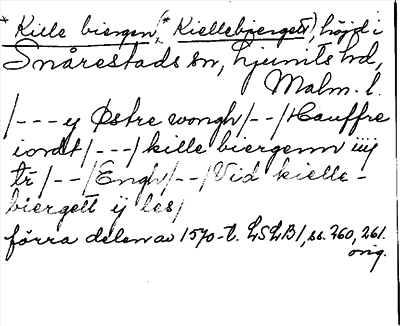 *Kille biergen, (*Kiellebjergett), höjd i
Snårestads sn, Ljunits hd,
Malm. l.
/---y Østre wongh/--/Hauffre
iordt/---/kille biergenn iiij
tr/--/Engh/--/Vid kielle-
biergett ij les/
förra delen av 1570-t. LSLB1, ss. 260, 261.
orig.